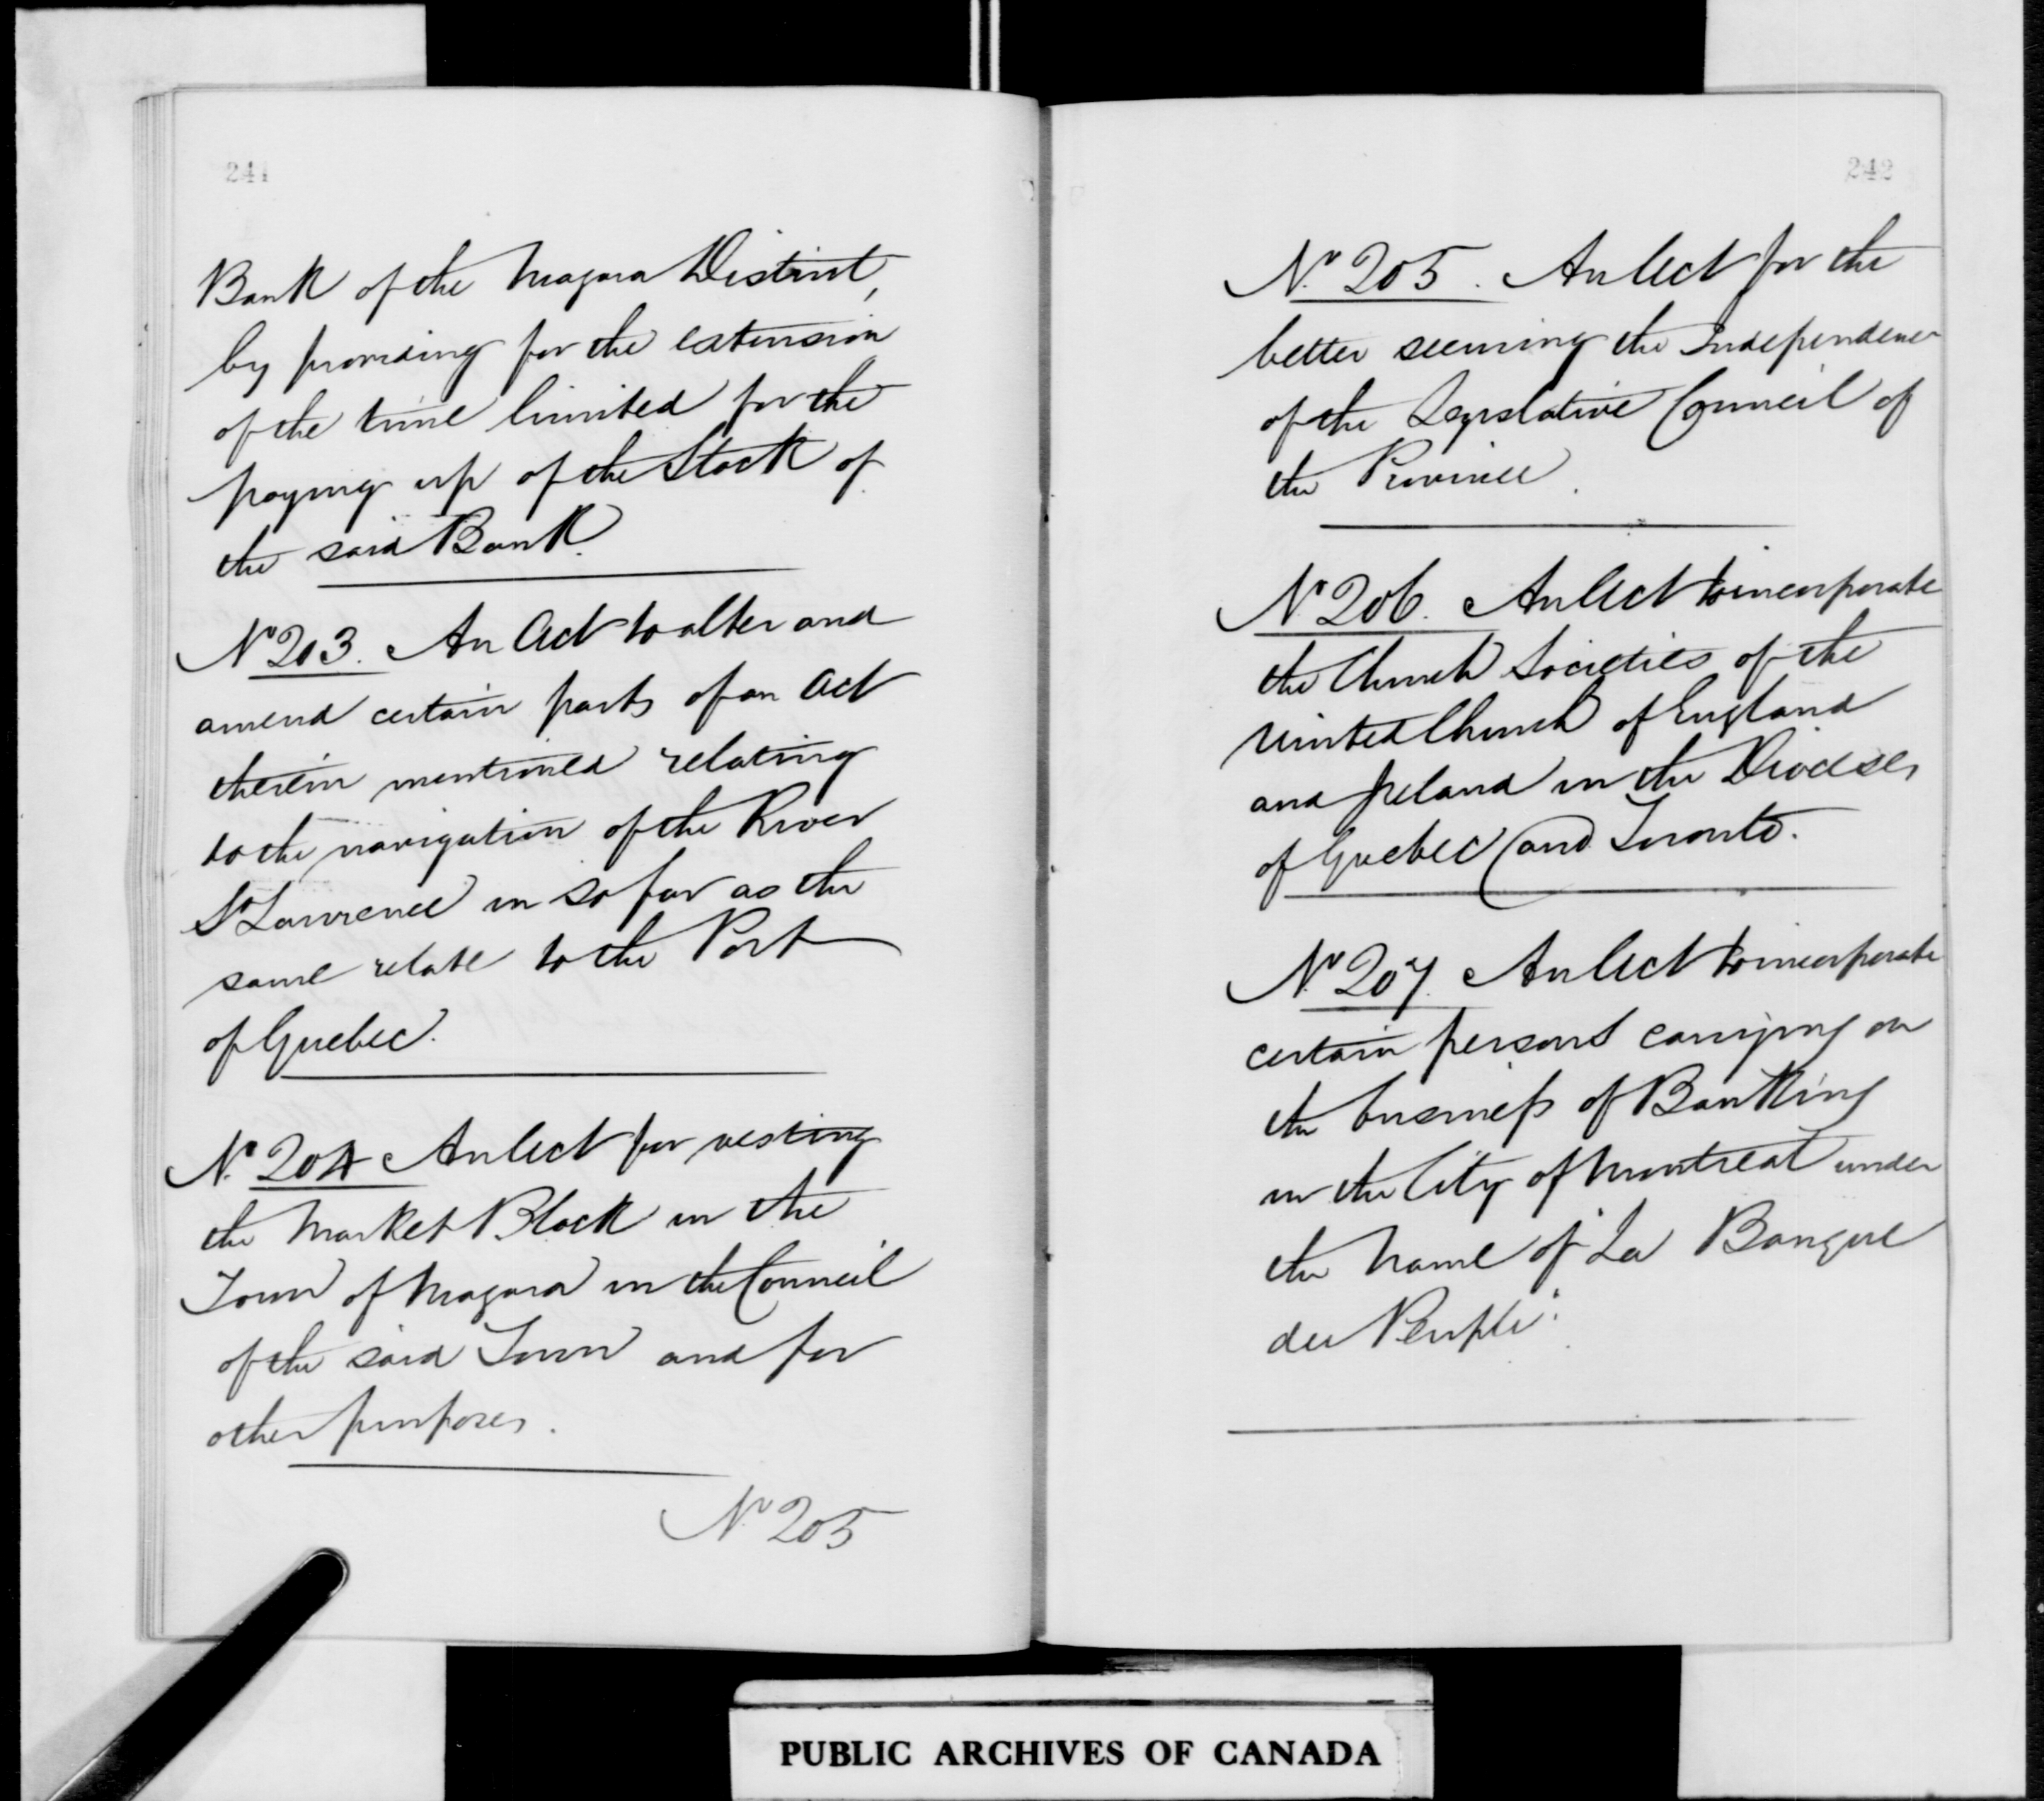 241
Bank of the Niagara District,
by providing for the extension
of the time limited for the
paying up of the Stock of
the said Bank.
No 203. An Act to alter and
amend certain parts of an Act
therein mentioned relating
to the navigation of the River
St Lawrence in so far as the
same relate to the Port
of Quebec.
No. 204 An Act for vesting
the Market Block in the
Town of Niagara in the Council
of the said Town and for
other purposes.
No 205
242
No. 205. An Act for the
better securing the Independence
of the Legislative Council of
the Province.
No 206. An Act to incorporate
the Church Societies of the
United Church of England
and Ireland in the Dioceses
of Quebec and Toronto.
No. 207. An Act to incorporate
certain persons carrying on
the business of Banking
in the City of Montreal under
the name of "La Banque
du Peuple".
PUBLIC ARCHIVES OF CANADA